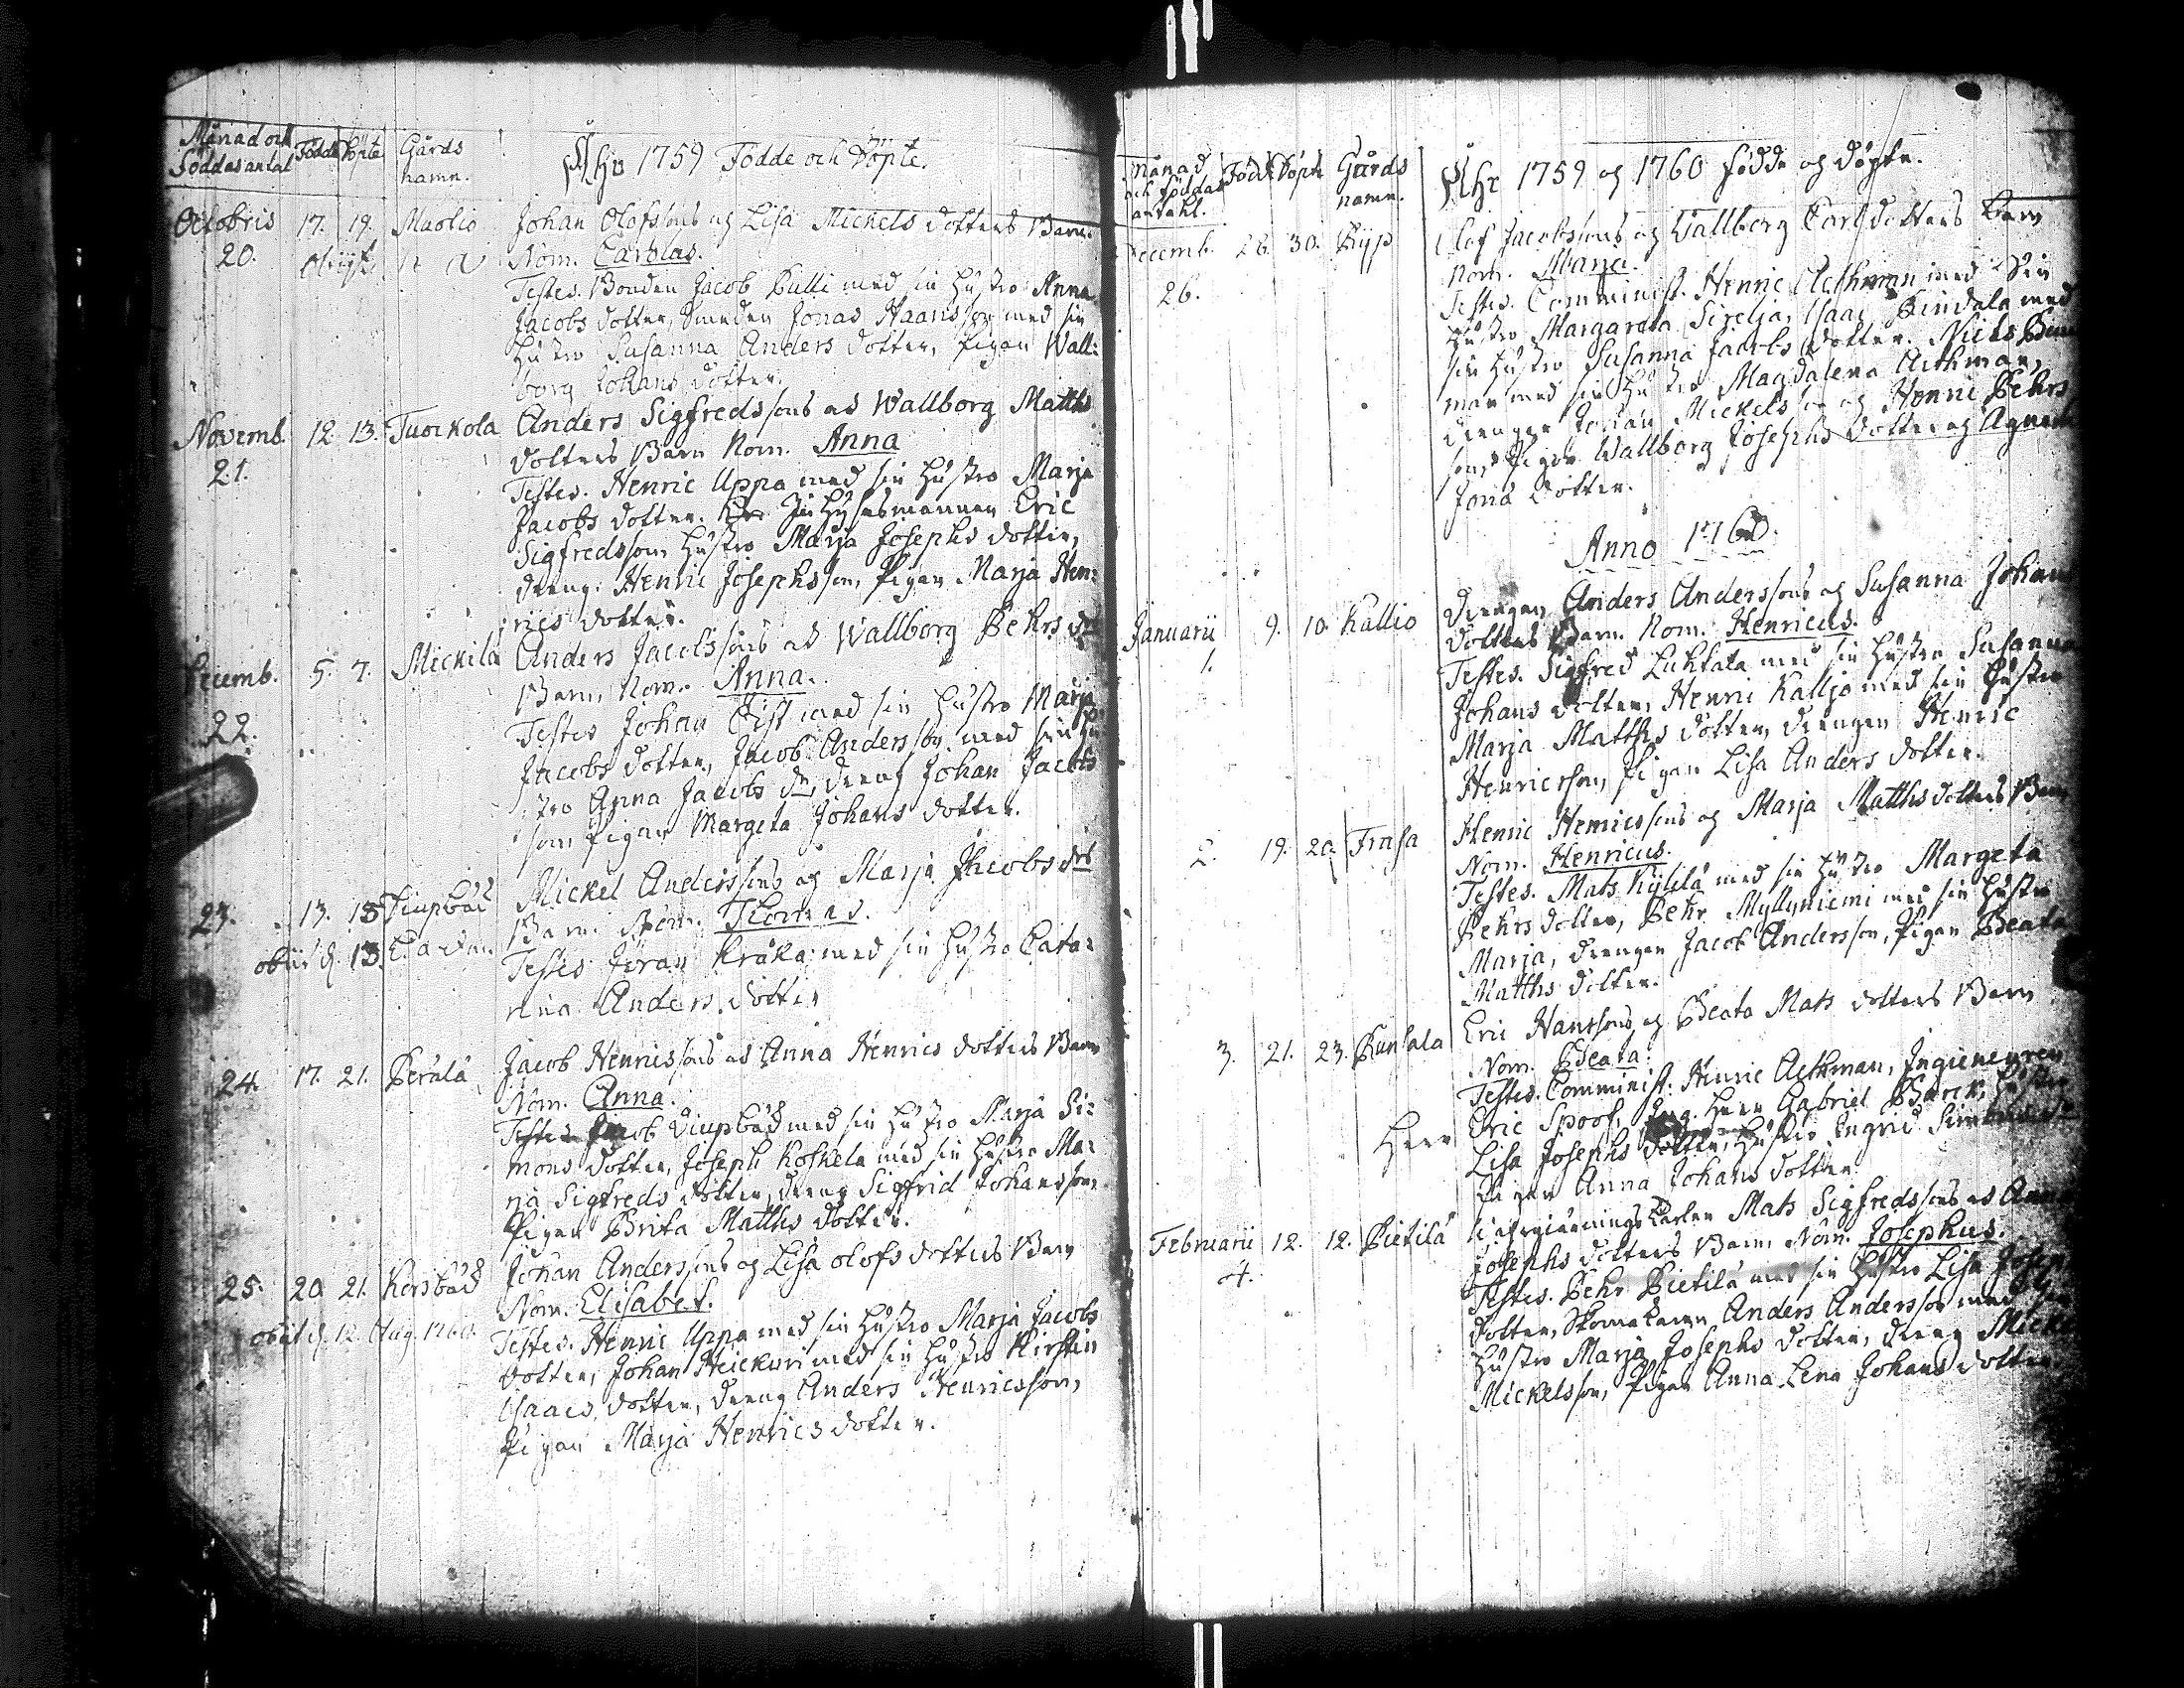 Månad och Föddas antal Födde Döpte Gårds namn. Åhr 1759 Födde och Döpte.
Octobris 17. 19. Muotio Johan Olofssons og Lisa Mickels dotters Barn.
20. Nom. Carolus.
Testes. Bonden Jacob Pulli med sin Hustro Anna
Jacobs dotter, Smeden Jonas Haansson med sin
Hustro Susanna Anders dotter, Pigan Wall:
borg Johans dotter.
Novemb. 12 13. Tuorkola Anders Sigfredssons as Wallborg Matths
21. dotters Barn Nom. Anna
Testes. Henric Uppa med sin Hustro Marja
Jacobs dotter. Inhysesmannen Eric
Sigfredsson Hustro Marja Josephs dotter,
dreng: Henric Josephsson, Pigan Marja Hen:
rics dotter.
Decemb. 5. 7. Mickila Anders Jacobssons as Wallborg Pehrs dr
22. Barn, Nom. Anna.
Testes Johan Qist med sin Hustro Marja
Jacobs dotter, Jacob Andersson med sin Hu
stro Anna Jacobs dr, dreng Johan Jacobs
son, Pigan Margeta Johans dotter.
23. 13. 15 Diupbäd Mickel Anderssons og Marja Jacobs drs
obiit d. 13. Barn. Nom. Thomas.
Testes Jöran Kråka med sin Hustro Cata:
rina Anders dotter
24. 17. 21. Perälä Jacob Henricssons as Anna Henrics dotters Barn
Nom. Anna.
Testes Jacob Diupbäd med sin Hustro Marja Si:
mons dotter, Joseph Koskela med sin Hustro Ma:
ria Sigfreds dotter, dreng Sigfrid Johansson,
Pigan Brita Matths dotter.
25. 20. 21. Korsbäd Johan Anderssons og Lisa Olofs dotters Barn
Nom. Elisabet.
obiit d. 12. Aug. 1760. Testes. Henric Uppa med sin Hustro Marja Jacobs
dotter, Johan Heickuri med sin Hustro Kirstin
Isaacs dotter, dreng Anders Henricsson,
Pigan Marja Henrics dotter.
Månad och föddas antahl. Född Döpte Gårds namn. Åhr 1759 og 1760 födde og döpte.
Decemb. 28. 30. Ryp Olof Jacobssons og Wallborg Carlsdotters Barn
26. Nom. Maria.
Testes. Comminist. Henric Aethman med Sin
Hustro Margareta Sirelia, Isaac Pindala med
sin Hustro Susanna Jacobs dotter. Niels
man med sin Hustro Magdalena Aethman,
drengar Johan Mickelsson og Henric Pehrs
son, Pigor Wallborg Josephs dotter og
Jona dotter.
Anno 1760.
Januarii 9. 10. Kallio Drengen Anders Anderssons og Susanna Johans
1. dotters Barn. Nom. Henricus.
Testes. Sigfred Luhtala med sin Hustro Susanna
Johans dotter, Henric Kalljo med sin Hustro
Marja Matths dotter, drengen Henric
Henricsson, Pigan Lisa Anders dotter.
2. 19. 20. Frasa Henric Henricssons og Marja Matths dotters Barn
Nom. Henricus.
Testes. Mats Kylelä med sin Hustro Margeta
Pehrs dotter, Pehr Myllyniemi med sin Hustro
Marja, drengen Jacob Andersson, Pigan Beata
Matths dotter.
3. 21. 23. Puntala Eric Hanssons og Beata Mats dotters Barn
Nom. Beata.
Testes. Comminist. Henric Aethman, Ingieneuren
Herr Eric Spoof, Herr Gabriel Barck, Hustro
Lisa Josephs dotter, Hustro Ingrid
Pigan Anna Johans dotter
Februarii 12. 12. Pietilä Mats Sigfredssons as Anna
4. Josephs dotters Barn Nom. Josephus.
Testes. Pehr Pietilä med sin Hustro Lisa Joseps
dotter, Skomakaren Anders Andersson med sin
Hustro Marja Josephs dotter, dreng Mickel
Mickelsson, Pigan Anna Lena Johans dotter